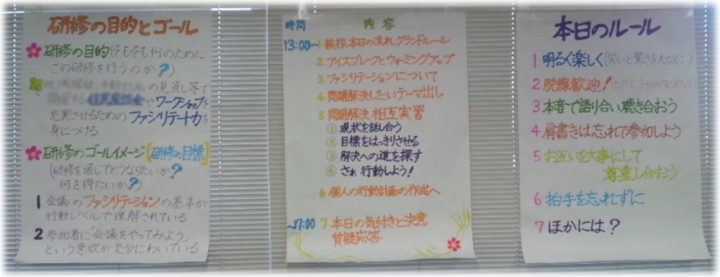 研修の目的とゴール
研修の目的(そもそも何のために
この研修を行うのか?)
の見直し等で
住民座談会やワークショップを
充実させるためのファシリテート力を
身につける
研修のゴールイメージ[研修の目標]
(研修を通じてどうなりたいか?
何を得たいか?)
1 会議のファシリテーションの基本が
行動レベルで理解されている
2 参加者に「会議をやってみよう」
という意欲が充分にわいている
時間 内容
13:00〜1 挨拶、本日の流れ、グランドルール
2 アイスブレークとウォーミングアップ
3 ファシリテーションについて
4 問題解決したいテーマ出し
5 問題解決 相互実習
① 現状を話し合う
② 目標をはっきりさせる
③ 解決への道を探す
④ さぁ 行動しよう!
6 個人の行動計画の作成へ
〜17:00 7 本日の気付きと決意
質疑応答
本日のルール
1 明るく楽しく(笑いと驚きを大切に)
2 脱線歓迎!
3 本音で語り合い聴き合おう
4 肩書きは忘れて参加しよう
5 お互いを大事にして
尊重し合おう
6 拍手を忘れずに
7 ほかには?